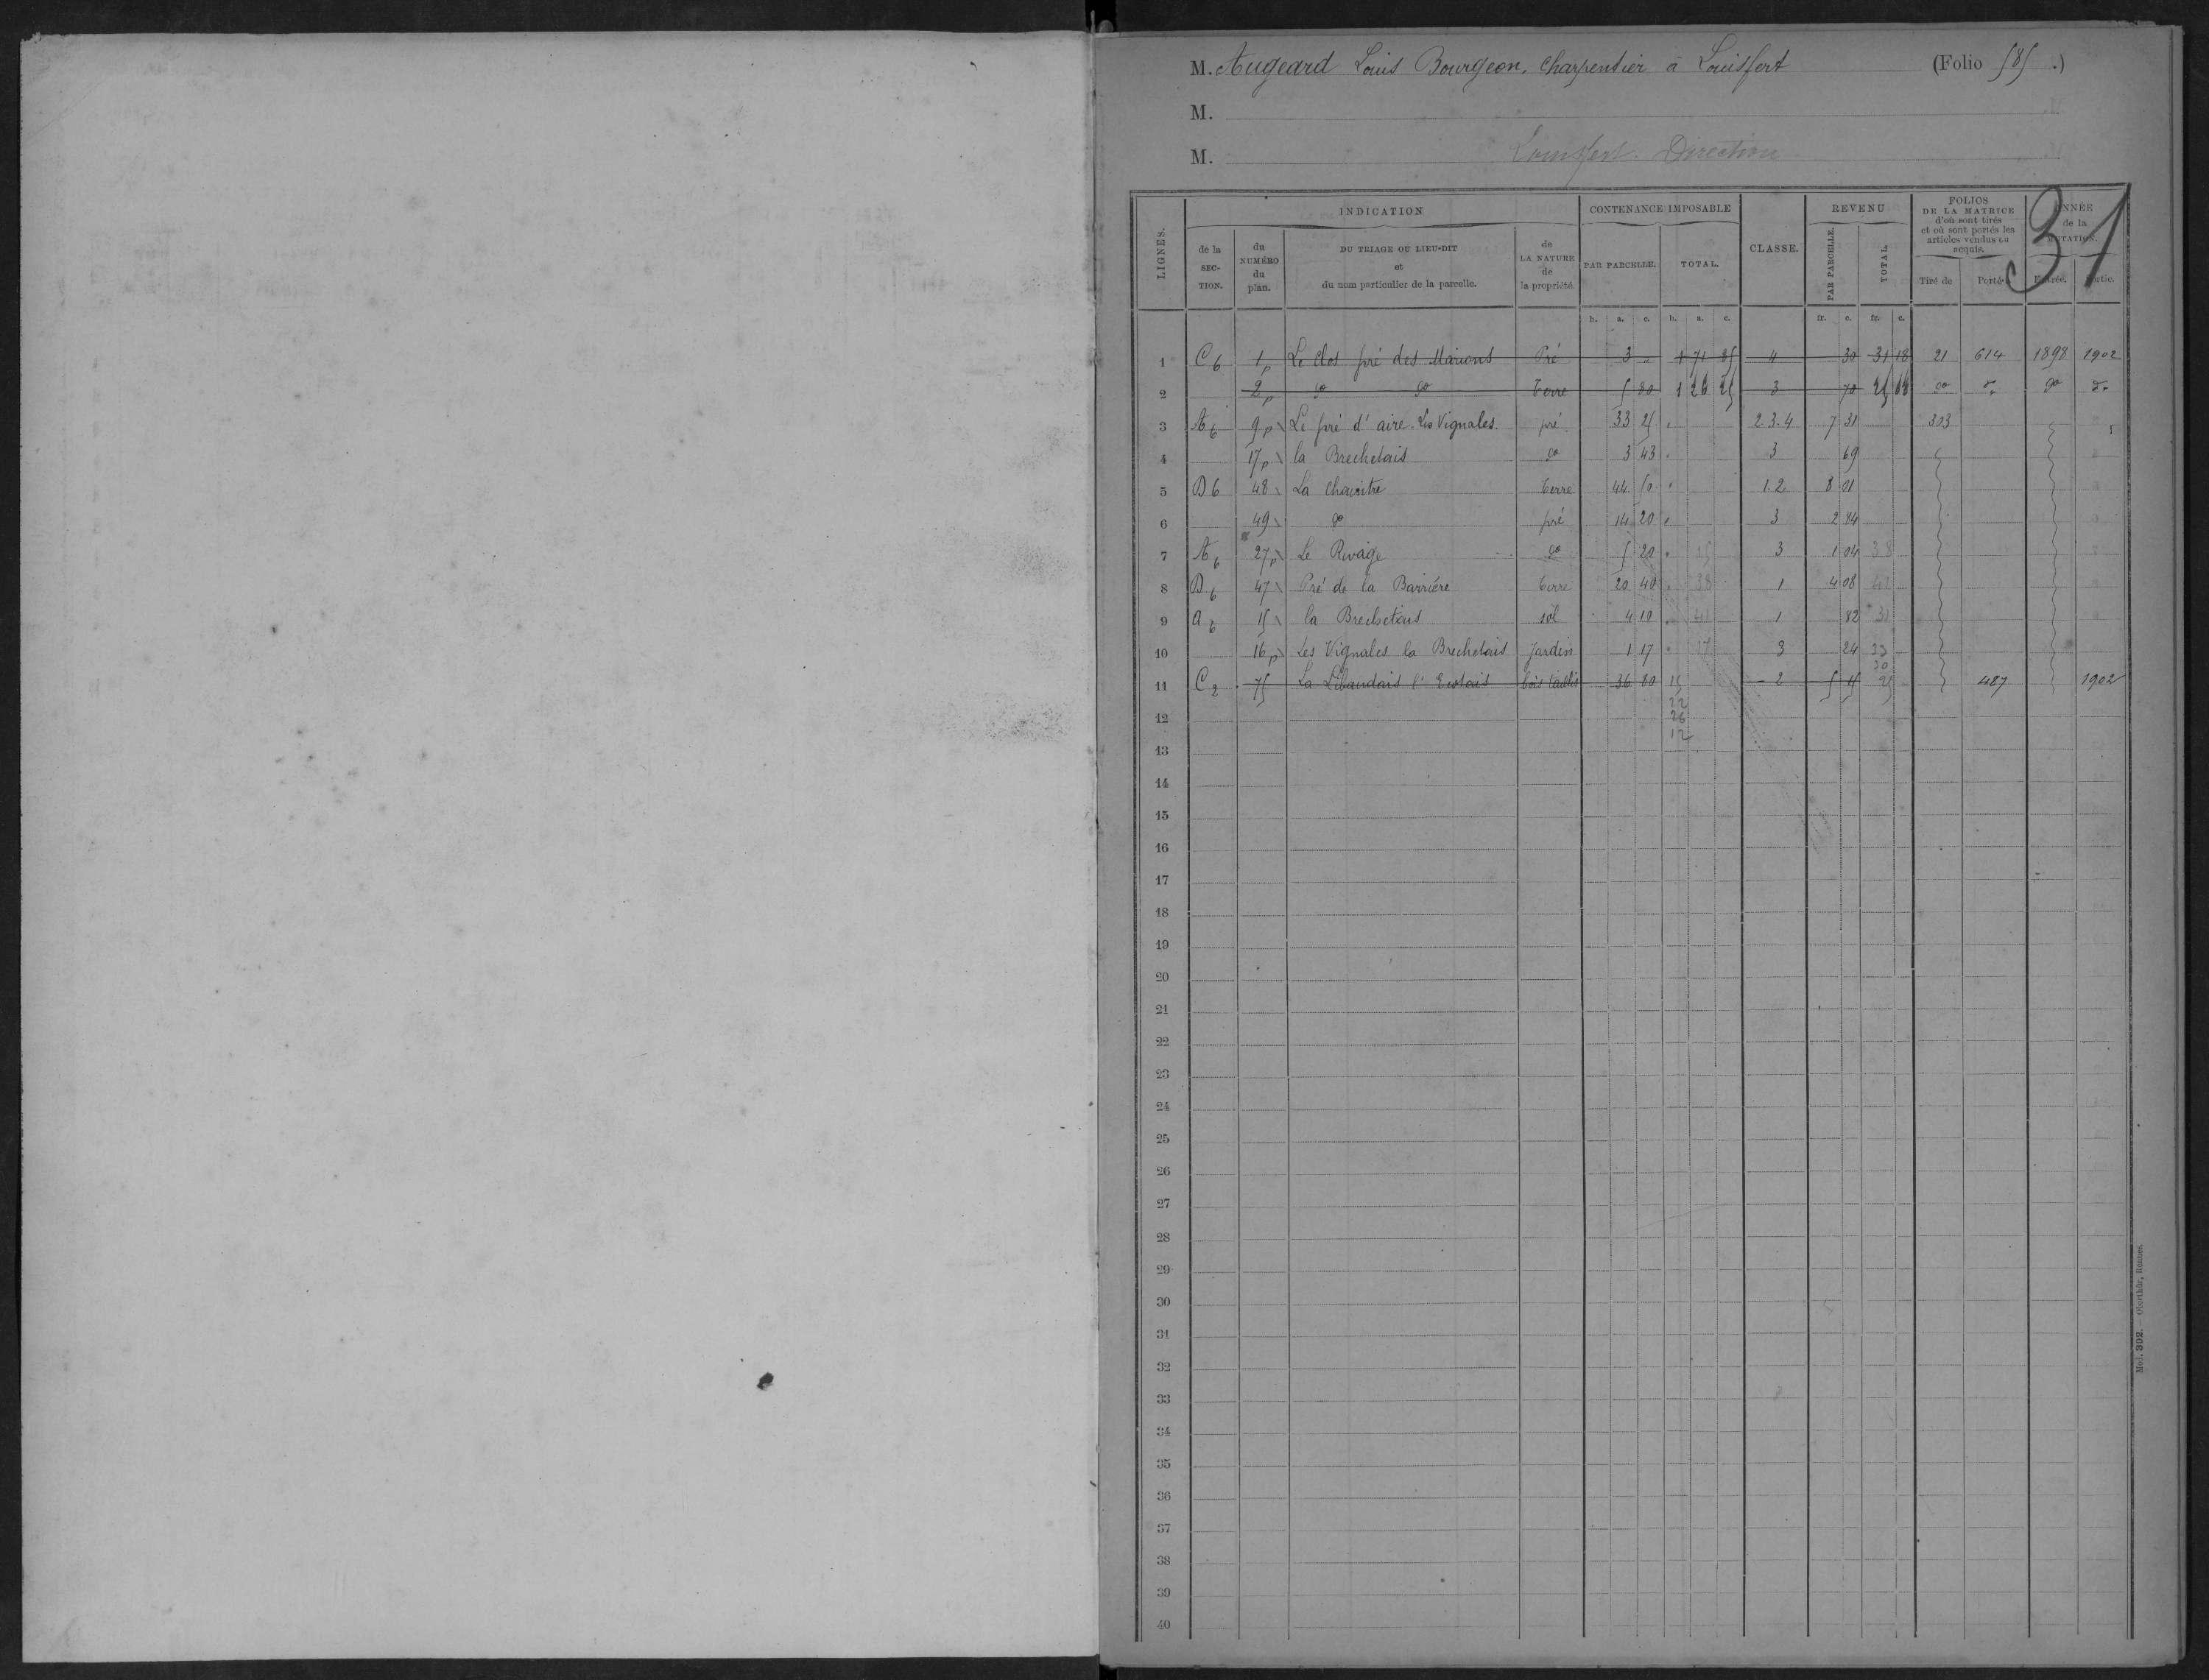 M. Augeard Louis Bourgeon, charpentier à Louisfert (Folio 585.)
M.
M. Louisfert. Direction
31
LIGNES. INDICATION CONTENANCE IMPOSABLE CLASSE. REVENU FOLIOS DE LA MATRICE d'où sont tirés et où sont portés les articles vendus ou acquis. ANNÉE de la MUTATION.
de la SECTION. du NUMÉRO du plan. DU TRIAGE OU LIEU-DIT et du nom particulier de la parcelle. de LA NATURE de la propriété. PAR PARCELLE. TOTAL. PAR PARCELLE. TOTAL. Tiré de Porté à Entrée. Sortie.
h. a. c. h. a. c. fr. c. fr. c.
1 C6 1p Le Clos pré des Marions Pré 3 " 1 71 85 4 30 31 18 21 614 1898 1902
2 2p do do Terre 5 80 1 26 25 3 70 25 08 do do do do
3 A6 9p Le pré d'aire. Les Vignales. pré 33 25 2.3.4 7 31 303
4 17p la Brechetais do 3 43 3 69
5 D6 48 La Chaintre Terre 44 50 1.2 8 01
6 49 do pré 14 20 3 2 84
7 A6 27p Le Rivage do 5 20 3 1 04 38
8 D6 47 Pré de la Barrière Terre 20 40 38 1 4 08
9 a6 15 la Brechetais sol 4 10 41 1 82 31
10 16p Les Vignales la Brechetais Jardin 1 17 17 3 24 23
20
11 C2 75 bois taillis 36 80 15 2 25 487 1902
22
12 26
12
13
14
15
16
17
18
19
20
21
22
23
24
25
26
27
28
29
30
31
32
33
34
35
36
37
38
39
40
Mod. 302. — Oberthür, Rennes.